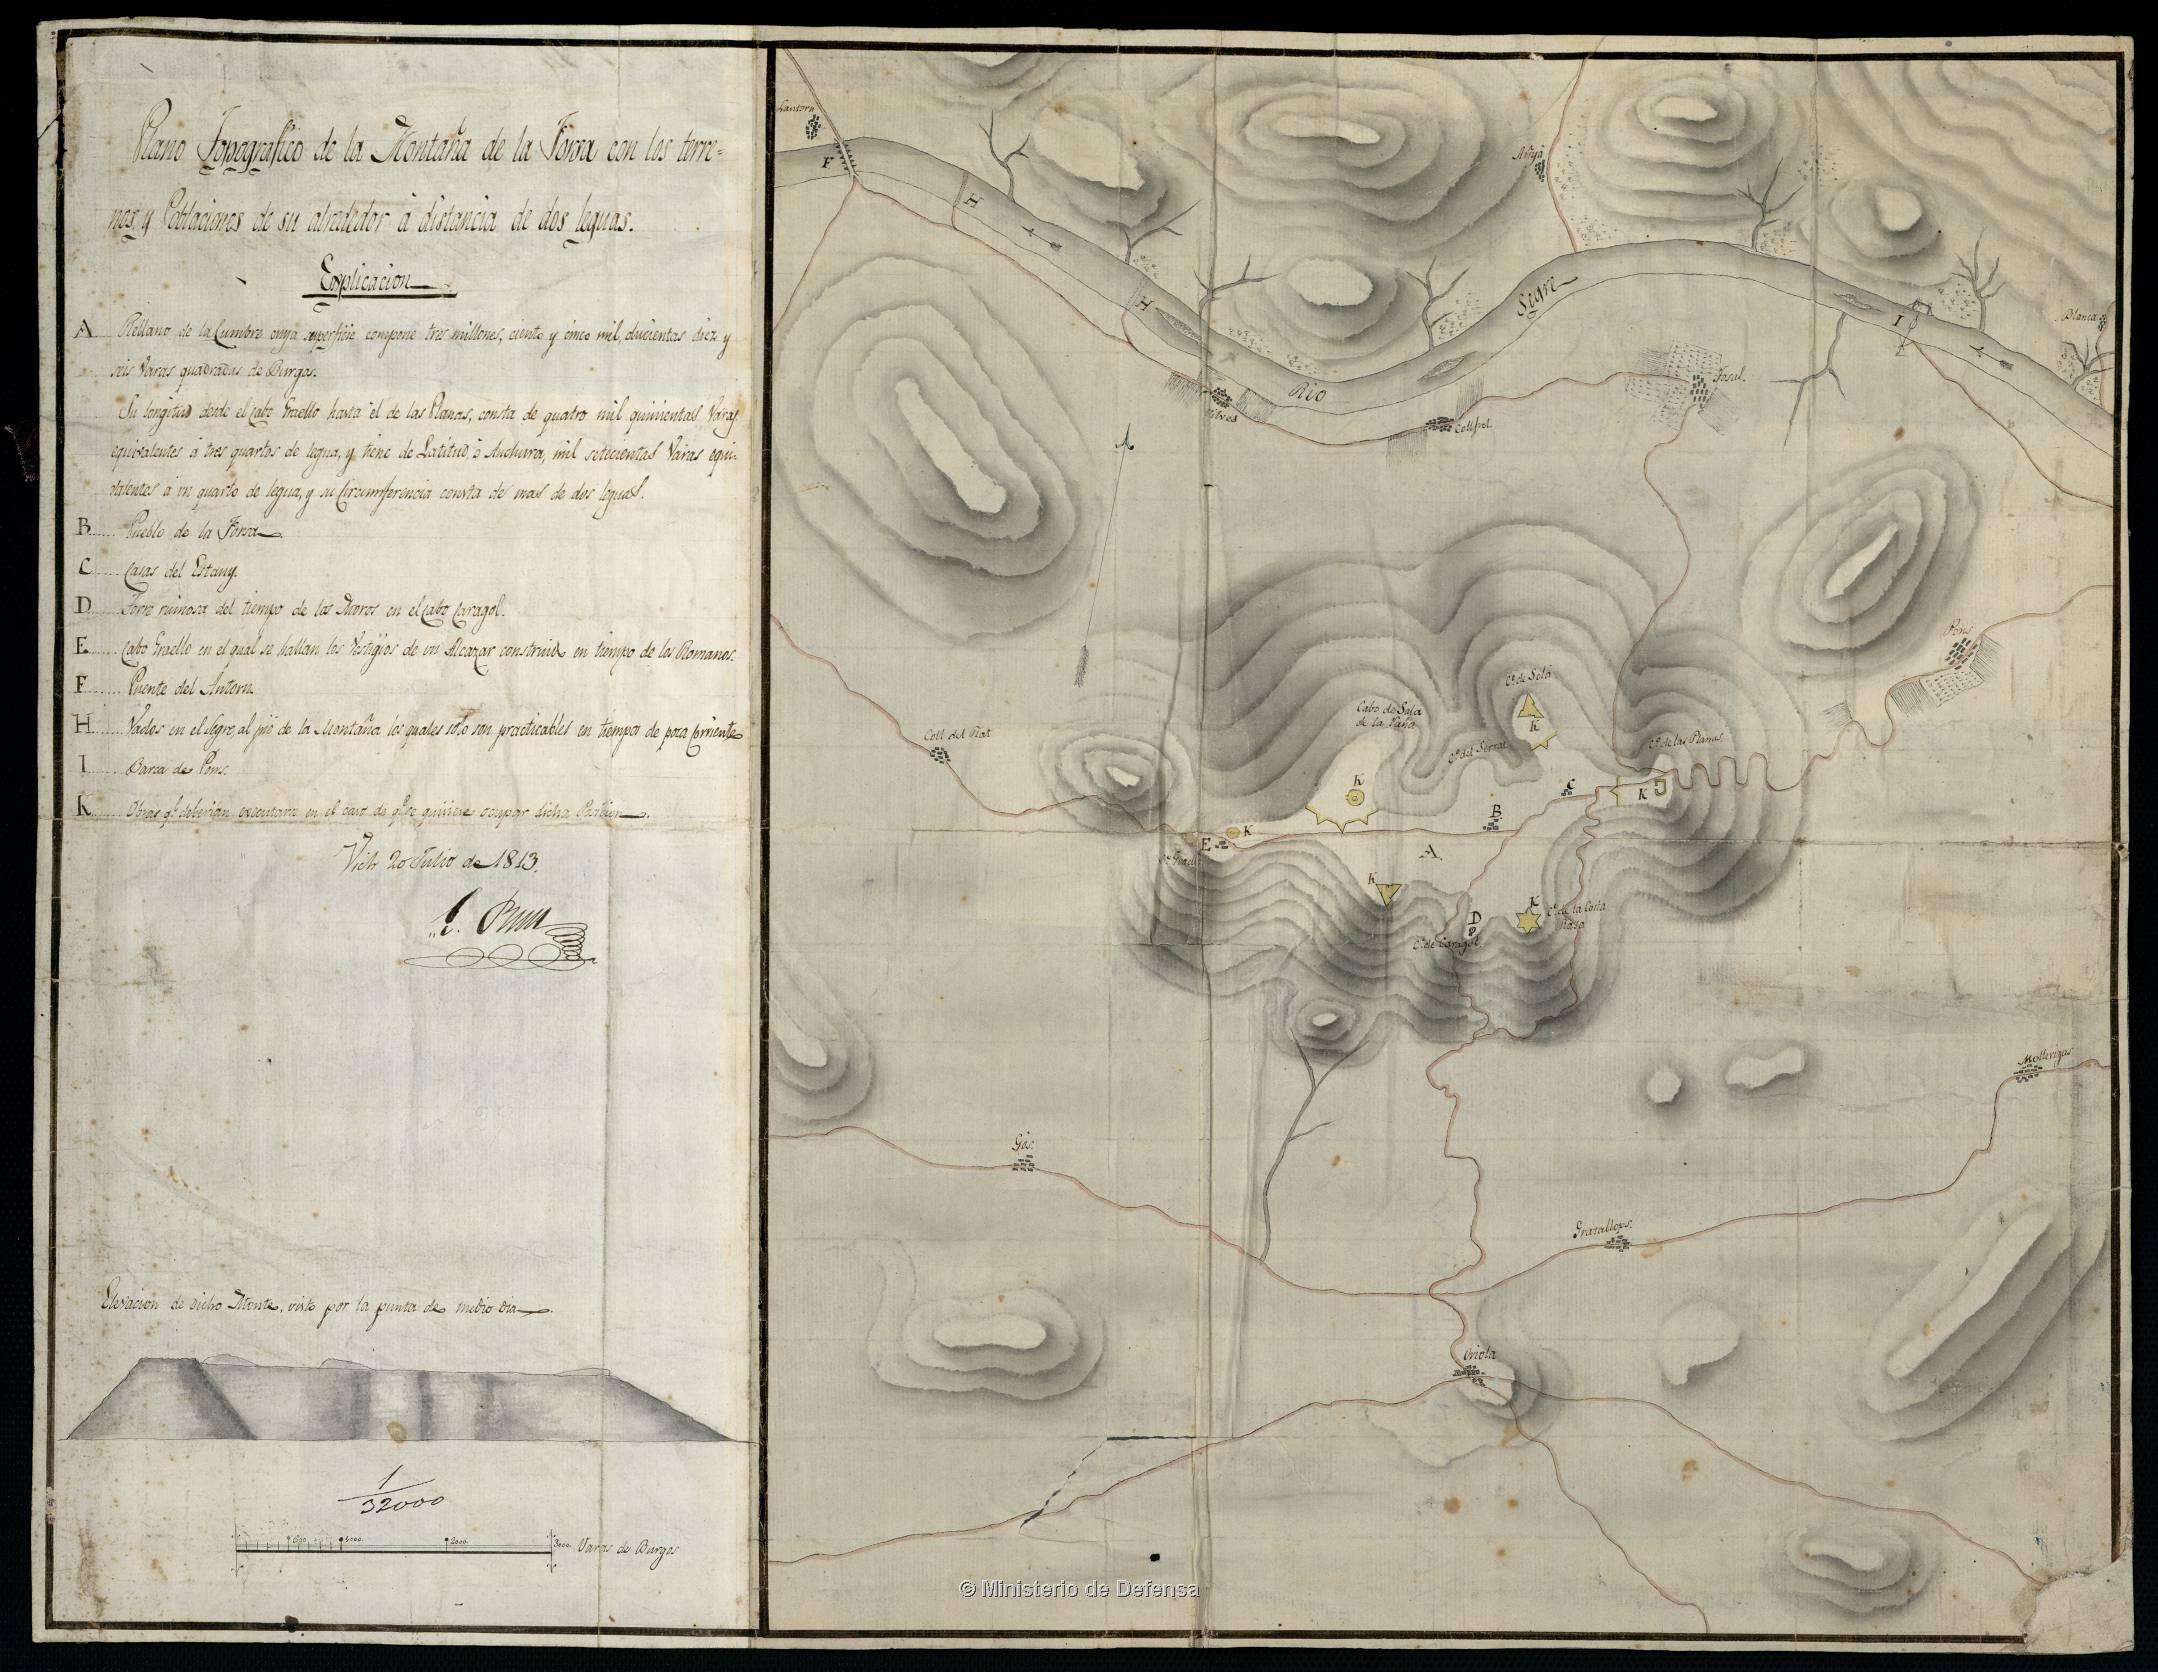 Plano Topografico de la Montaña de la Forsa con los terre-
nos, y Poblaciones de su alrededor á distancia de dos leguas.
Explicacion
A Rellano de la Cumbre cuya superficie compone tres millones, ciento y cinco mil, ducientas diez y
seis Varas quadradas de Burgos.
Su longitud desde el Cabo Graello hasta el de las Planas, consta de quatro mil quinientas Varas
equivalentes á tres quartos de legua, y tiene de Latitud, ó Anchura, mil setecientas Varas equi-
valentes á un quarto de legua, y su Circumferencia consta de mas de dos leguas.
B Pueblo de la Forsa
C Casas del Estany.
D Torre ruinosa del tiempo de los Moros en el Cabo Caragol.
E Cabo Graello en el qual se hallan los Vestigios de un Alcazar construido en tiempo de los Romanos.
F Puente del Antorn
H Vados en el Segre, al pié de la Montaña los quales solo son practicables en tiempo de poca Corriente
I Barca de Pons.
K Obras qe. deberian executarse en el caso de qe. se quisiese ocupar dicha Posicion
Vich 20 Julio de 1813.
Elevacion de dicho Monte, visto por la punta de medio dia
1
32000
500 1000 2000 3000 Varas de Burgos
F
H
Añyá
H
Segre
Rio
I
Tosal.
Collfret
Pons
Cº de Solá
K
Cabo de Sala
de la
Cº del Serrat
Cº de las Planas
Coll del Rat
K
K
C
B
E
K
A
K
D
K
Cº de la Costa
Rasa
Cº de Caragol
Gos.
Grasallops.
Oriola
© Ministerio de Defensa